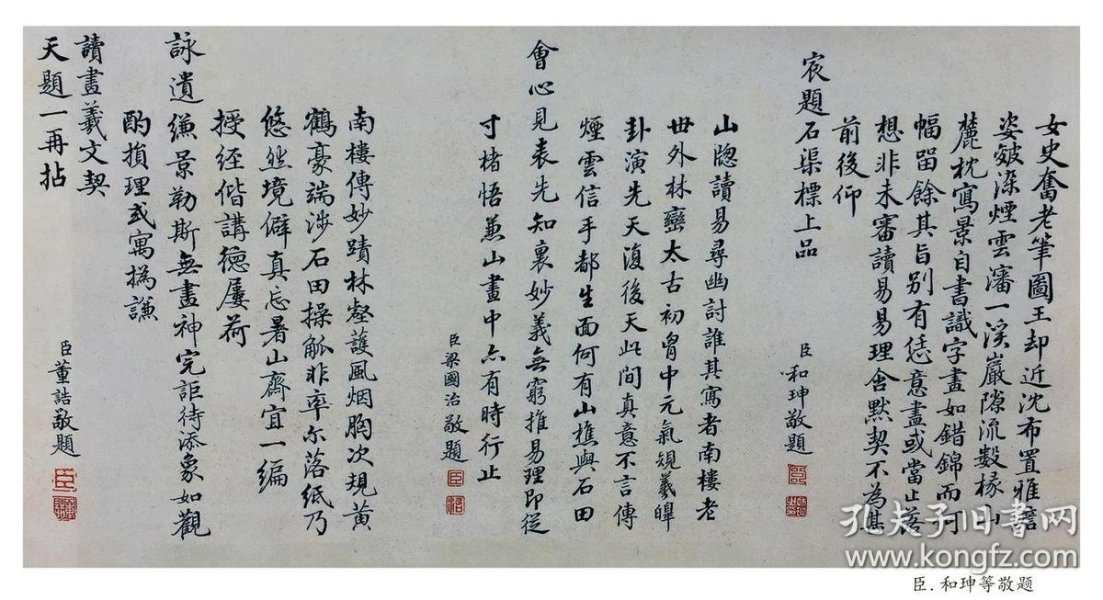 女史奮老筆圖王却近沈布置雅
姿皴染煙雲瀋一溪巖隙流數椽山
麓枕寫景自書識字畫如錯錦而可
幅留餘其旨別有恁意盡或當止落
想非未審讀易易理含默契不為甚
前後仰
宸題石渠標上品
臣和珅敬題
山牕讀易尋幽討誰其寫者南樓老
世外林巒太古初胷中元氣規羲皞
卦演先天復後天此間真意不言傳
煙雲信手都生面何有山樵與石田
會心見表先知裏妙義無窮推易理即從
寸楮悟兼山畫中亦有時行止
臣梁國治敬題
南樓傳妙蹟林壑護風烟胸次現黃
鶴豪端涉石田操觚非率尔落紙乃
悠然境僻真忘暑山齋宜一編
授經偕講德屢荷
詠遺縑景勒斯無盡神完詎待添象如觀
酌損理或寓撝謙
讀畫羲文契
天題一再拈
臣董誥敬題
孔夫子旧书网
www.kongfz.com
臣.和珅等敬题